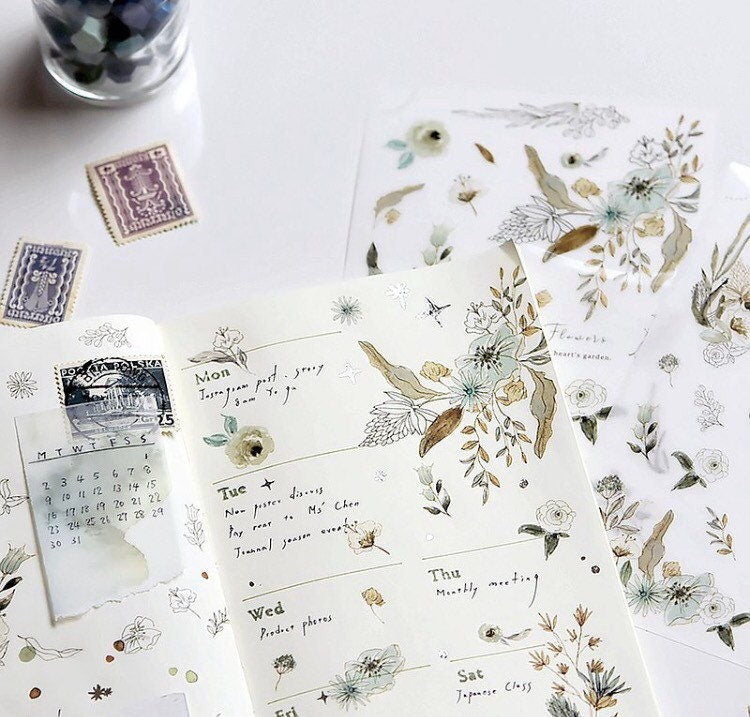 POCZTA POLSKA
25
M T W T F S S
1
2 3 4 5 6 7 8
9 10 11 12 13 14 15
16 17 18 19 20 21 22
23 24 25 26 27 28 29
30 31
Mon
Instagram post. story
Tue
New poster discuss
Pay rent to Ms' Chen
Journal season event
Wed
Product photos
Thu
Monthly meeting
Fri
Sat
Japanese Class
Flowers
heart's garden.